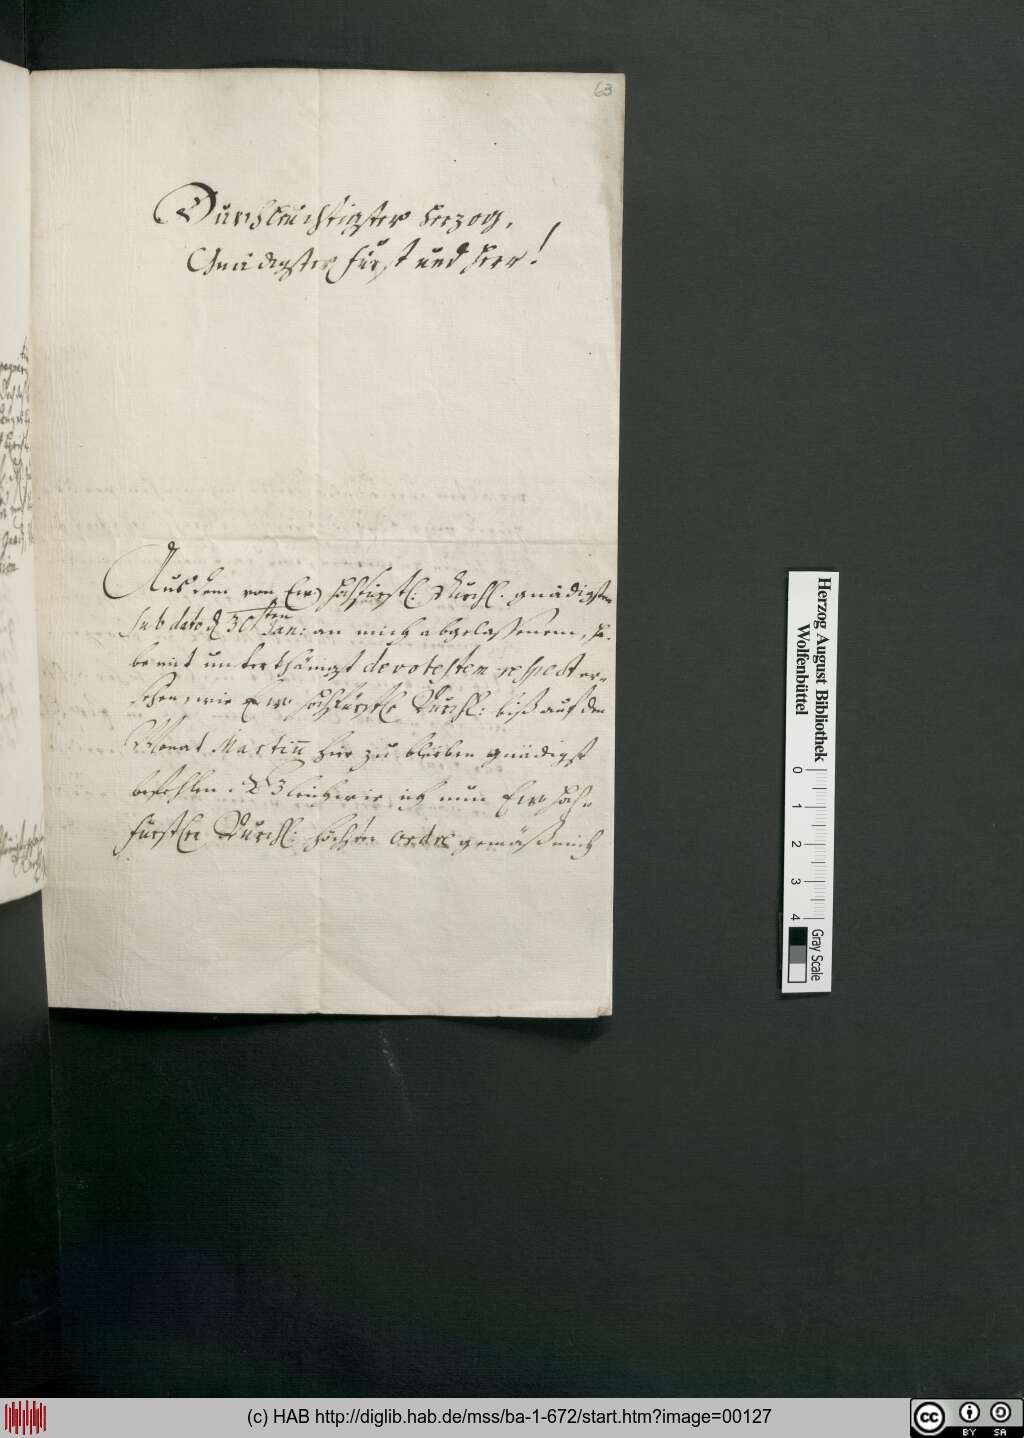 63
Durchleuchtigster Herzog,
Gnädigster Fürst und Herr!
Aus dem von Ew. Hochfürstl: Durchl. gnädigst
sub dato d 30sten Jan: an mich abgelaßenem, ha-
be mit unterthänigst devotestem respect er-
sehen, wie Ew. Hochfürstle Durchl: biß auf den
Monat Martii hier zu bleiben gnädigst
befehlen. Gleichwie ich nun Ew. Hoch-
fürstlee Durchl: ordre gemäß mich
Herzog August Bibliothek
Wolfenbüttel
0 1 2 3 4
Gray Scale
(c) HAB http://diglib.hab.de/mss/ba-1-672/start.htm?image=00127
CC BY SA